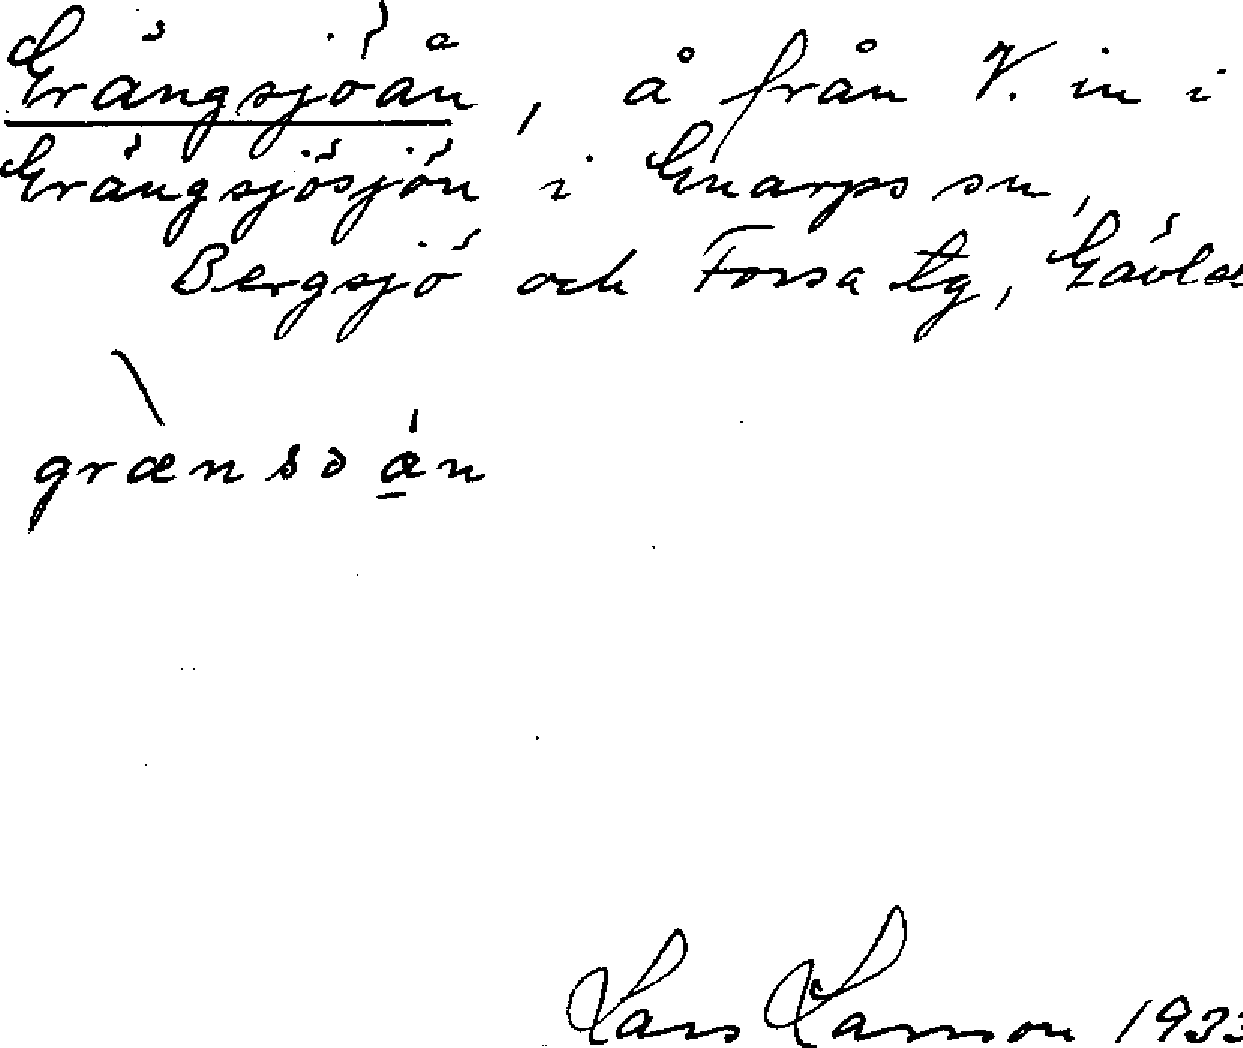 Grängsjöån, å från V. in i
Grängsjösjön i Gnarps sn,
Bergsjö och Forsa tg, Gävle
grænsoån
Lars Larsson 1933